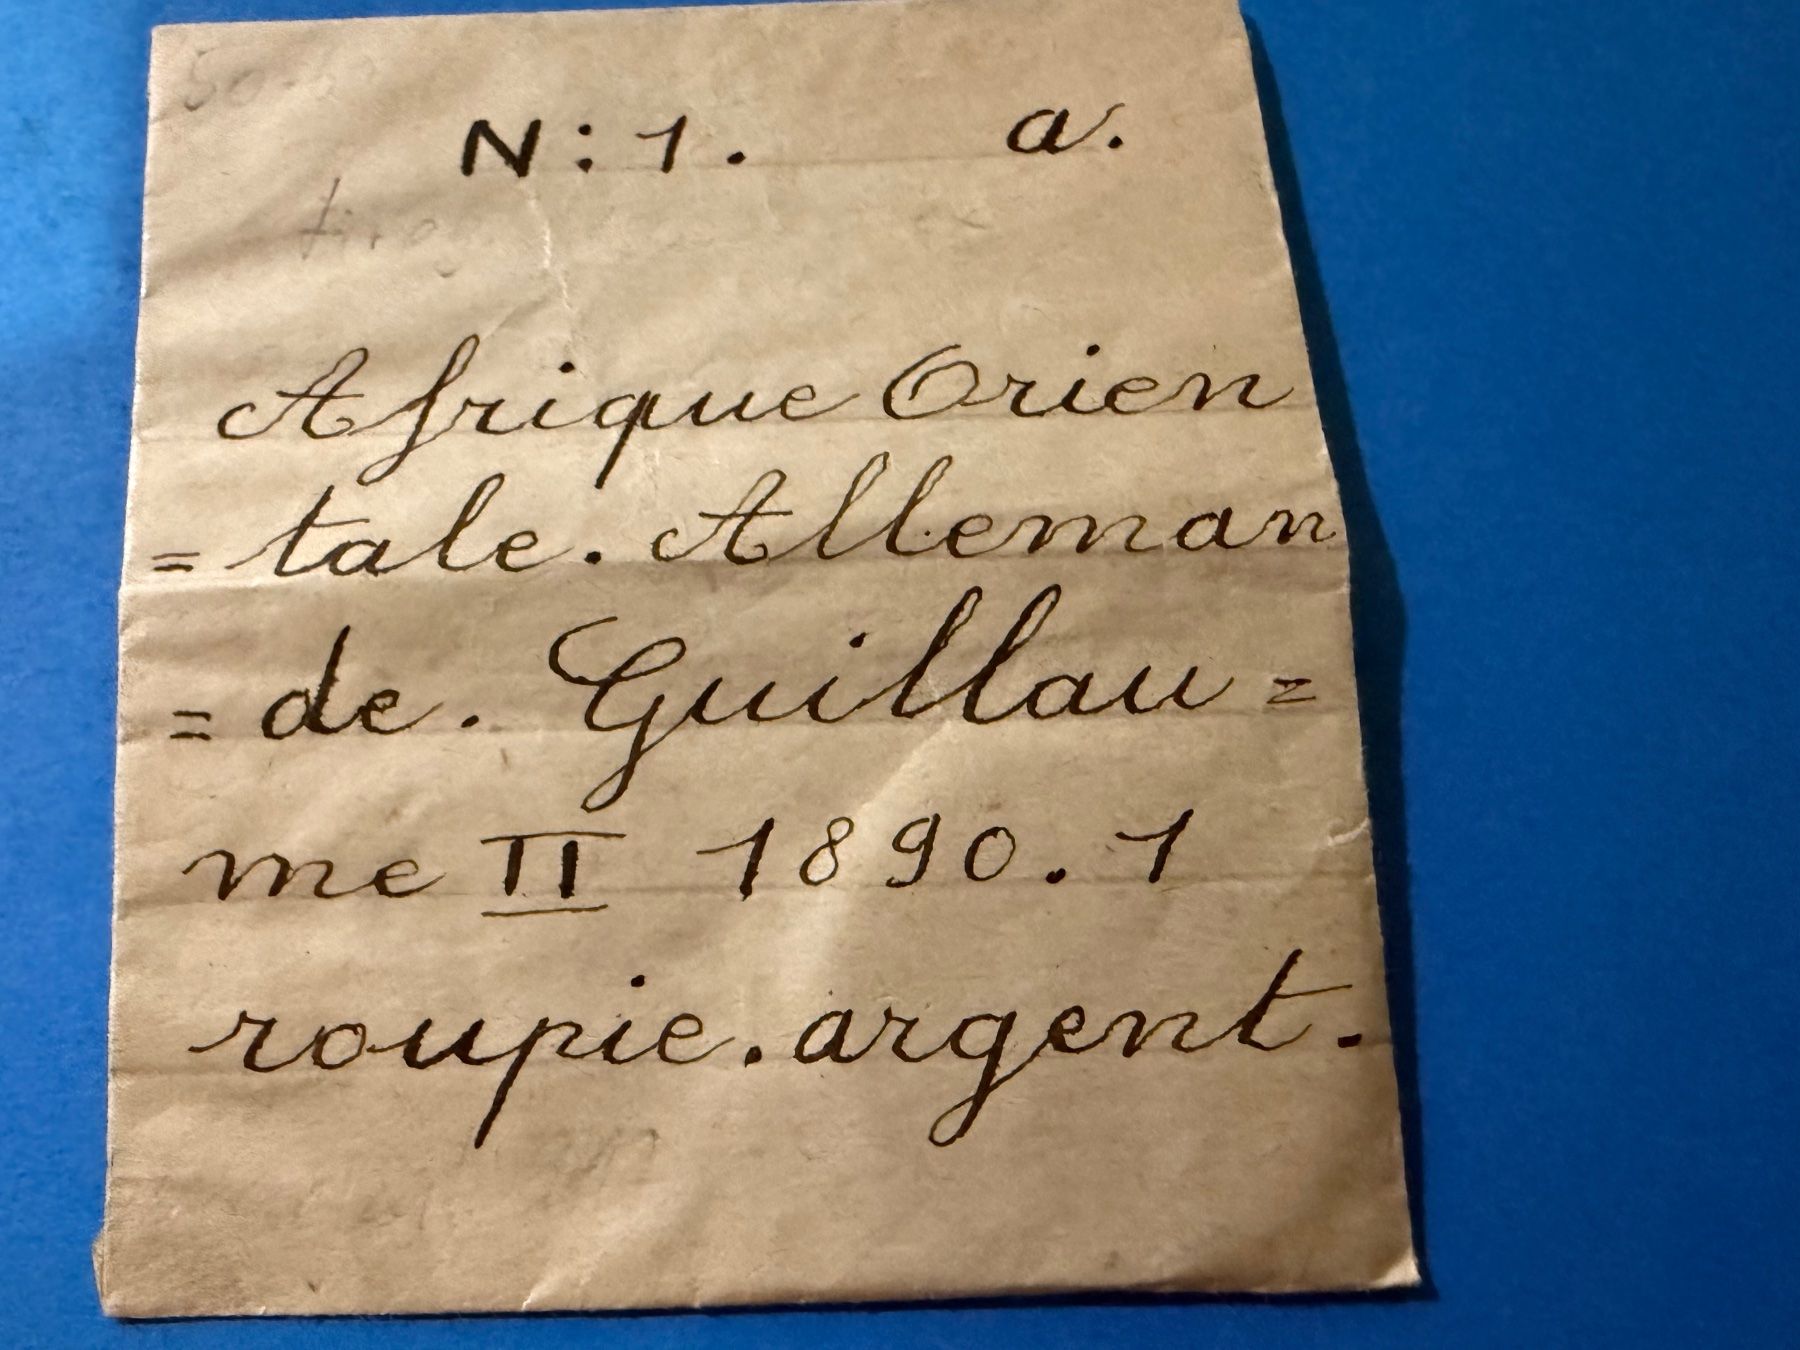 N: 1. a.
Afrique Orien
= tale. Alleman
= de. Guillau =
me II 1890. 1
roupie. argent.